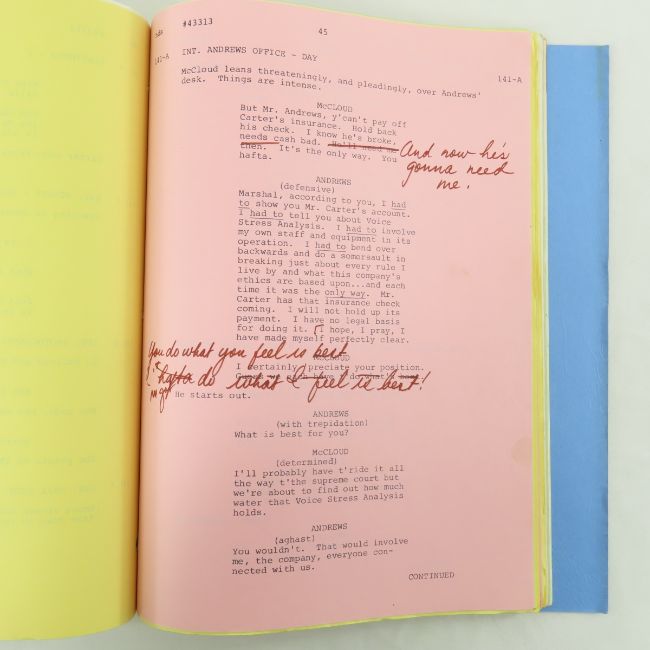 #43313
45
141-A INT. ANDREWS OFFICE - DAY 141-A
McCloud leans threateningly, and pleadingly, over Andrews'
desk. Things are intense.
McCLOUD
But Mr. Andrews, y'can't pay off
Carter's insurance. Hold back
his check. I know he's broke,
needs cash bad. He'll need me
then. It's the only way. You
hafta.
And now he's
gonna need
me.
ANDREWS
(defensive)
Marshal, according to you, I had
to show you Mr. Carter's account.
I had to tell you about Voice
Stress Analysis. I had to involve
my own staff and equipment in its
operation. I had to bend over
backwards and do a somersault in
breaking just about every rule I
live by and what this company's
ethics are based upon...and each
time it was the only way. Mr.
Carter has that insurance check
coming. I will not hold up its
payment. I have no legal basis
for doing it. I hope, I pray, I
have made myself perfectly clear.
You do what you feel is best
McCLOUD
I certainly 'preciate your position.
I hafta do what I feel is best!
He starts out.
ANDREWS
(with trepidation)
What is best for you?
McCLOUD
(determined)
I'll probably have t'ride it all
the way t'the supreme court but
we're about to find out how much
water that Voice Stress Analysis
holds.
ANDREWS
(aghast)
You wouldn't. That would involve
me, the company, everyone con-
nected with us.
CONTINUED